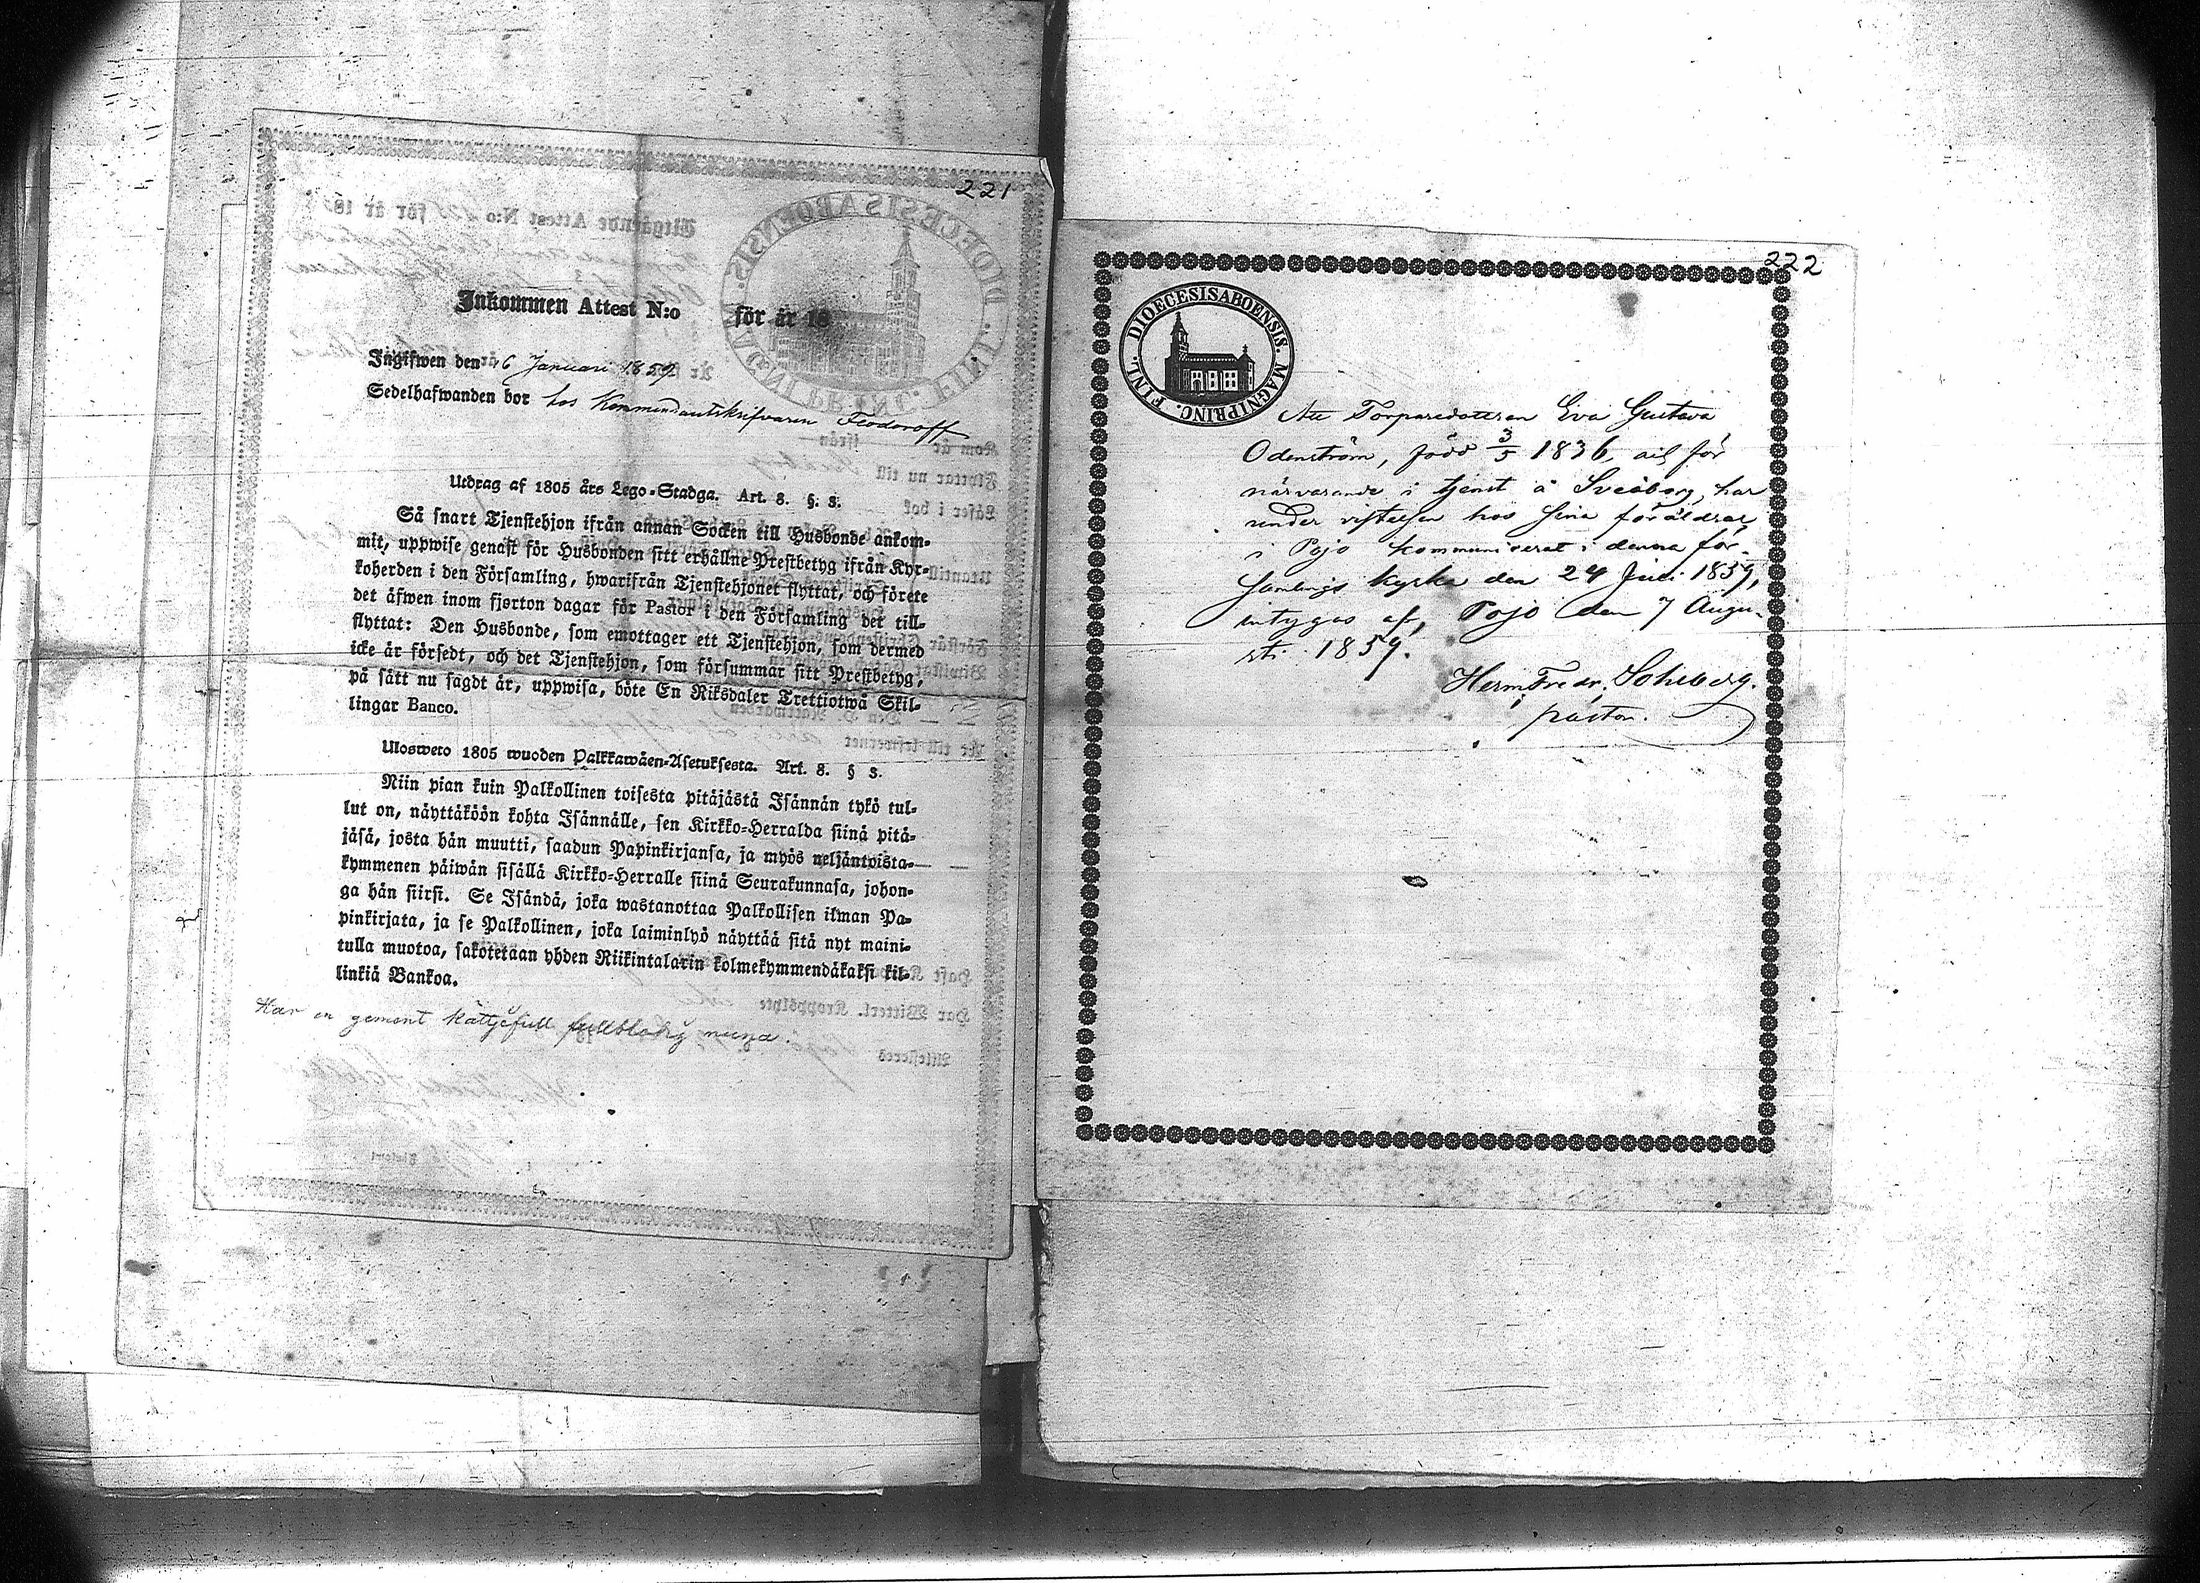 221
Inkommen Attest N:o för år 18
Ingifwen den 6 Januari 1859
Sedelhafwanden bor hos Kommendantskrifvaren Feodoroff
Utdrag af 1805 års Lego-Stadga. Art. 8. §. 3.
Så snart Tjenstehjon ifrån annan Socken till Husbonde ankom-
mit, uppwise genast för Husbonden sitt erhållne Prestbetyg ifrån Kyr-
koherden i den Församling, hwarifrån Tjenstehjonet flyttat, och förete
det äfwen inom fjorton dagar för Pastor i den Församling det till-
flyttat: Den Husbonde, som emottager ett Tjenstehjon, som dermed
icke är försedt, och det Tjenstehjon, som försummar sitt Prestbetyg,
på sätt nu sagdt är, uppwisa, böte En Riksdaler Trettiotwå Skil-
lingar Banco.
Ulosweto 1805 wuoden Palkkawäen-Asetuksesta. Art. 8. § 3.
Niin pian kuin Palkollinen toisesta pitäjästä Isännän tykö tul-
lut on, näyttäköön kohta Isännälle, sen Kirkko-Herralda siinä pitä-
jäsä, josta hän muutti, saadun Papinkirjansa, ja myös neljäntoista-
kymmenen päiwän sisällä Kirkko-Herralle siinä Seurakunnasa, johon-
ga hän siirsi. Se Isändä, joka wastanottaa Palkollisen ilman Pa-
pinkirjata, ja se Palkollinen, joka laiminlyö näyttää sitä nyt maini-
tulla muotoa, sakotetaan yhden Riikintalarin kolmekymmendäkaksi kil-
linkiä Bankoa.
Har en gement
222
DIOECESIS ABOENSIS. MAGNI PRINC. FINL.
Att Torparedottren Eva Gustava
Odenström, född 3/5 1836, och för
närvarande i tjenst å Sveaborg, har
under vistelsen hos sina föräldrar
i Pojo kommunicerat i denna för-
samlings kyrka den 24 Juli 1859,
intygas af, Pojo den 7 Augu-
sti 1859.
Herm. Fredr. Sohlberg.
pastor.